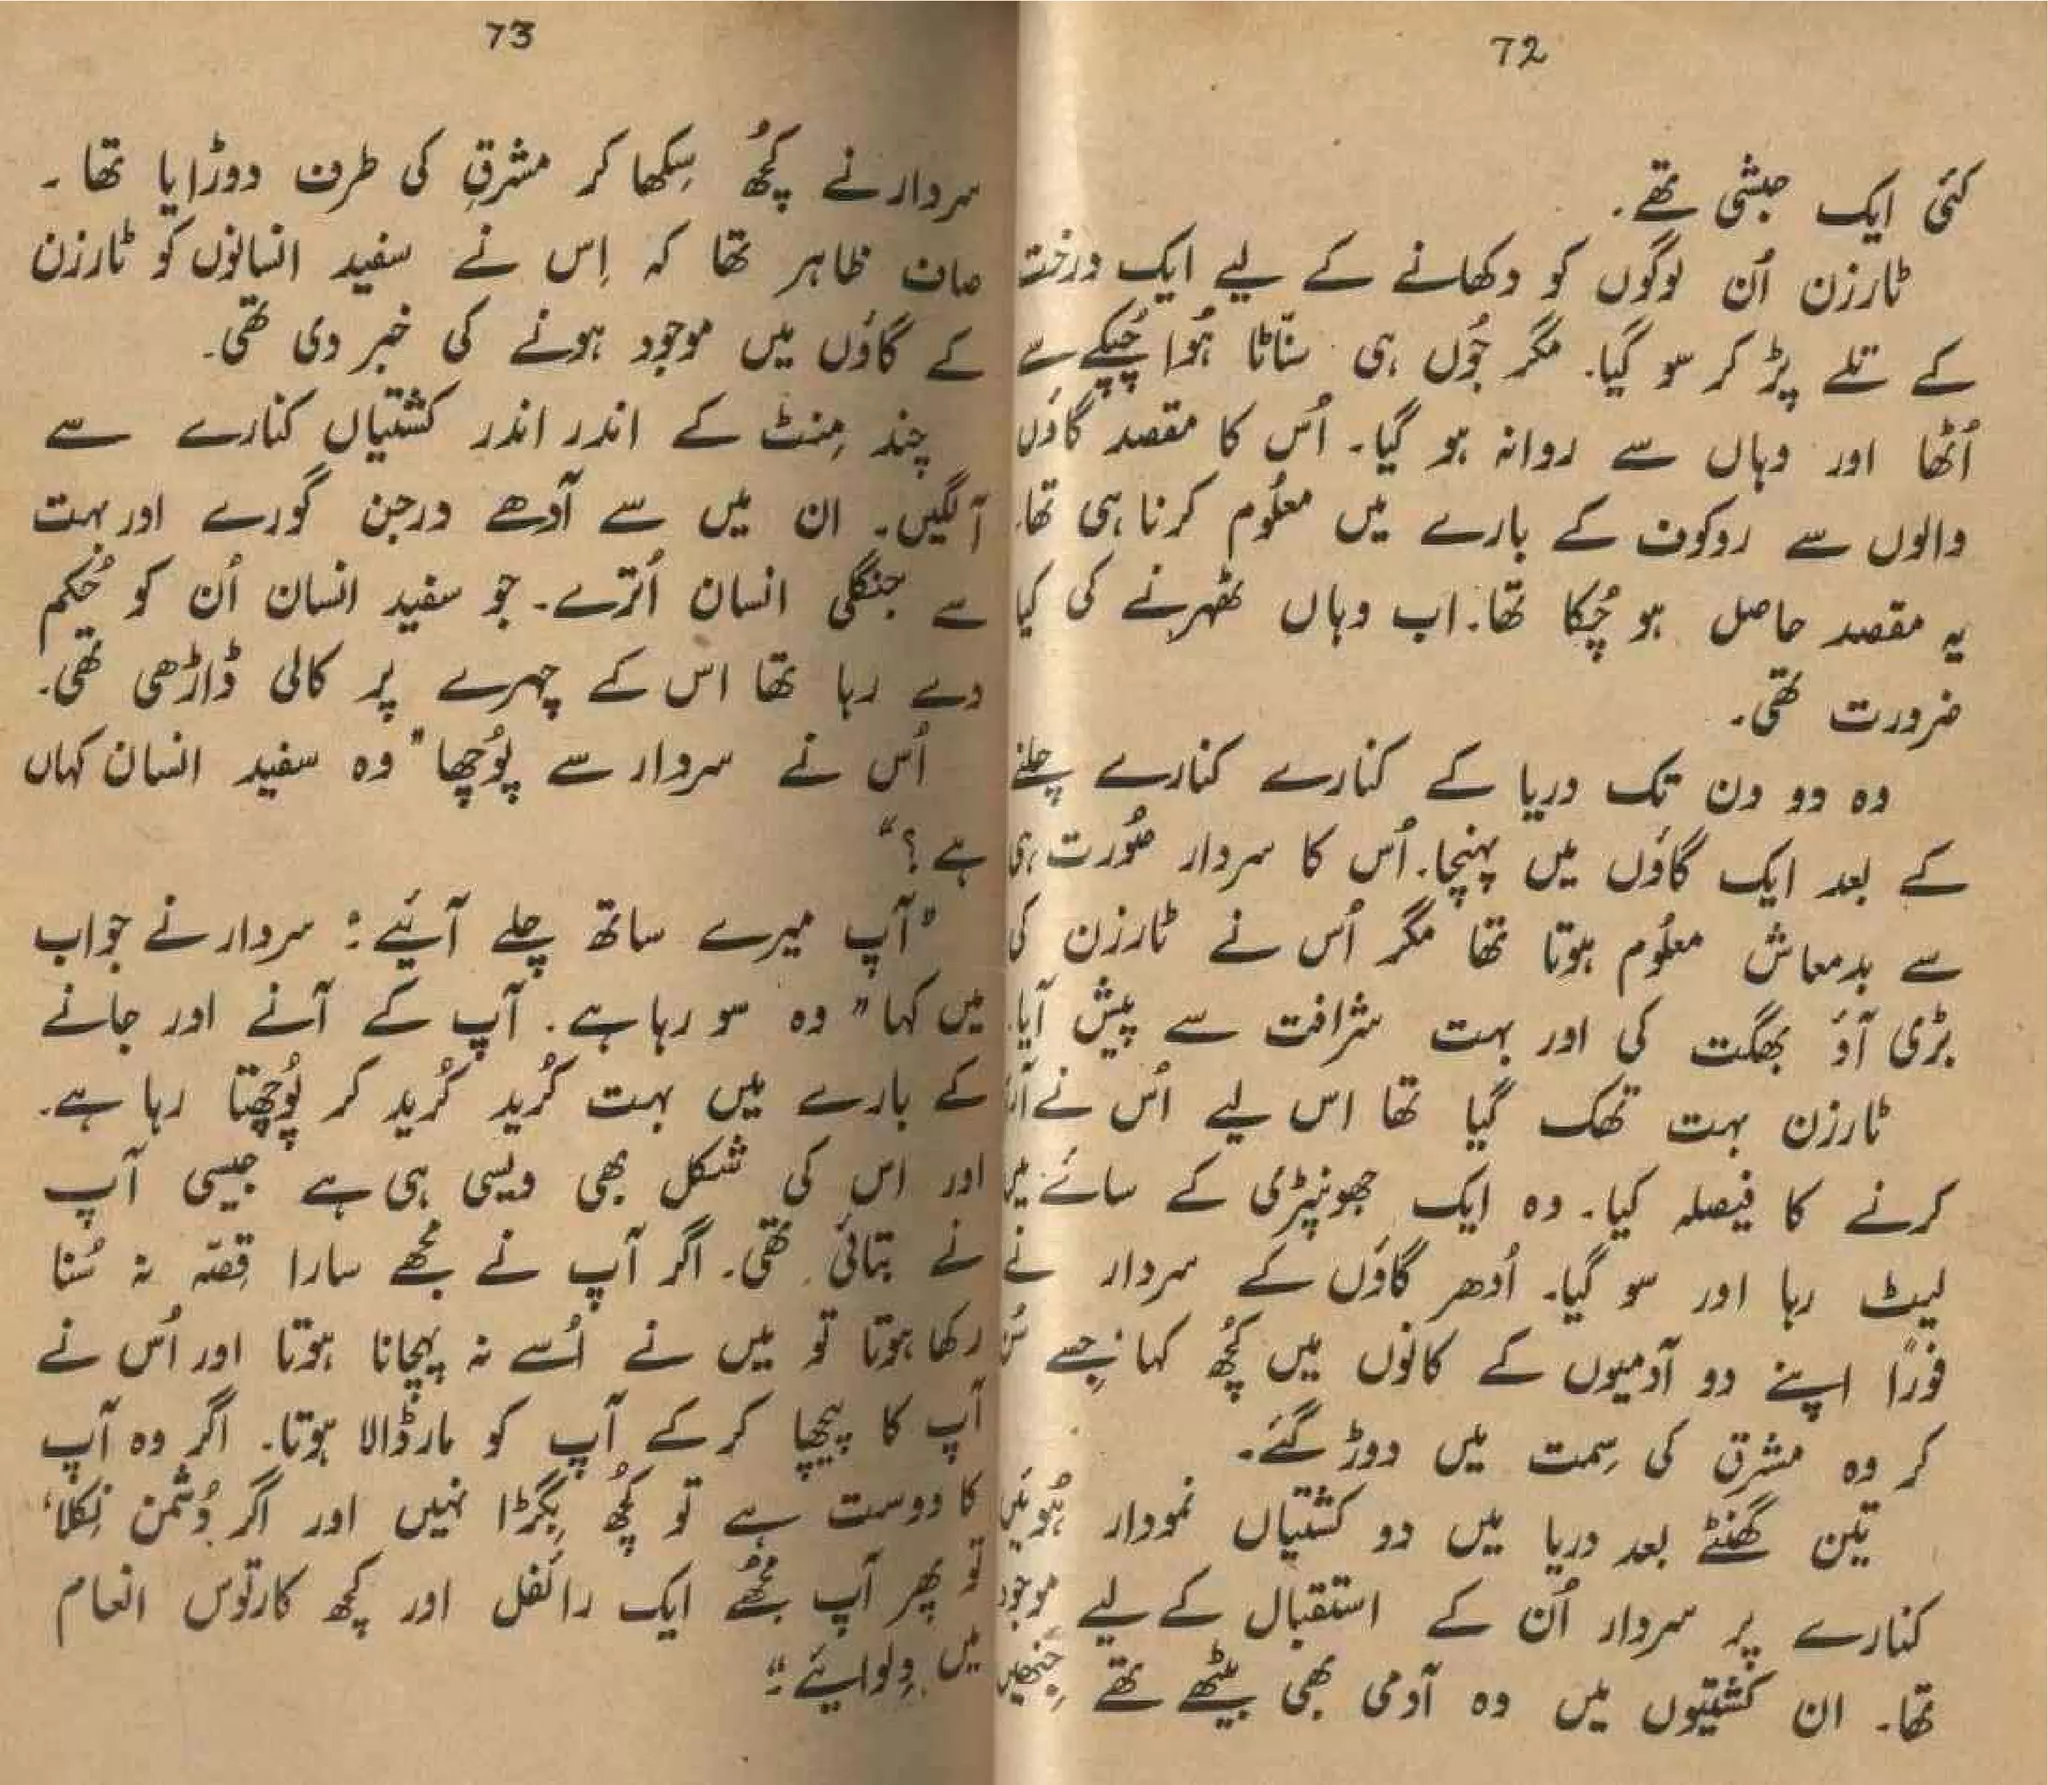 72
کئی ایک حبشی تھے۔
ٹارزن اُن لوگوں کو دکھانے کے لیے ایک درخت
کے تلے پڑ کر سو گیا۔ مگر جُوں ہی سنّاٹا ہُوا چُپکے سے
اُٹھا اور وہاں سے روانہ ہو گیا۔ اُس کا مقصد گاؤں
والوں سے روکوف کے بارے میں معلُوم کرنا ہی تھا۔
یہ مقصد حاصل ہو چُکا تھا۔ اب وہاں ٹھہرنے کی کیا
ضرورت تھی۔
وہ دو دن تک دریا کے کنارے کنارے چلنے
کے بعد ایک گاؤں میں پہنچا۔ اُس کا سردار صُورت ہی
سے بدمعاش معلُوم ہوتا تھا مگر اُس نے ٹارزن کی
بڑی آؤ بھگت کی اور بہت شرافت سے پیش آیا۔
ٹارزن بہت تھک گیا تھا اس لیے اُس نے
کرنے کا فیصلہ کیا۔ وہ ایک جھونپڑی کے سائے میں
لیٹ رہا اور سو گیا۔ اُدھر گاؤں کے سردار نے
فورًا اپنے دو آدمیوں کے کانوں میں کُچھ کہا جِسے سُن
کر وہ مشرق کی سِمت میں دوڑ گئے۔
تین گھنٹے بعد دریا میں دو کشتیاں نمودار ہُوئیں
کنارے پر سردار اُن کے استقبال کے لیے موجود
تھا۔ ان کشتیوں میں وہ آدمی بھی بیٹھے تھے جِنھیں
73
سردار نے کُچھ سِکھا کر مشرقِ کی طرف دوڑایا تھا۔
صاف ظاہر تھا کہ اِس نے سفید انسانوں کو ٹارزن
کے گاؤں میں موجود ہونے کی خبر دی تھی۔
چند مِنٹ کے اندر اندر کشتیاں کنارے سے
آ لگیں۔ ان میں سے آدھے درجن گورے اور بہت
سے جنگلی انسان اُترے۔ جو سفید انسان اُن کو حُکم
دے رہا تھا اس کے چہرے پر کالی ڈاڑھی تھی۔
اُس نے سردار سے پُوچھا "وہ سفید انسان کہاں
ہے؟"
"آپ میرے ساتھ چلے آئیے:" سردار نے جواب
میں کہا "وہ سو رہا ہے۔ آپ کے آنے اور جانے
کے بارے میں بہت کُرید کُرید کر پُوچھتا رہا ہے۔
اور اس کی شکل بھی ویسی ہی ہے جیسی آپ
نے بتائی تھی۔ اگر آپ نے مُجھے سارا قِصّہ نہ سُنا
رکھا ہوتا تو میں نے اُسے نہ پہچانا ہوتا اور اُس نے
آپ کا پیچھا کر کے آپ کو مار ڈالا ہوتا۔ اگر وہ آپ
کا دوست ہے تو کُچھ بِگڑا نہیں اور اگر دُشمن نِکلا،
تو پھر آپ مُجھے ایک رائفل اور کُچھ کارتوس انعام
میں دِلوایئے۔"